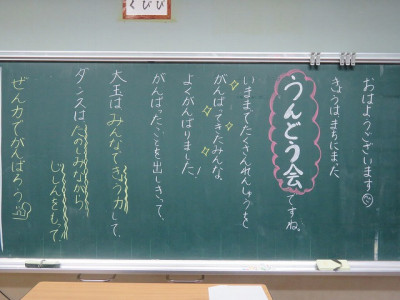 くび
おはようございます
きょうは、まちにまった
うんどう会ですね。
いままでたくさんれんしゅうを
がんばってきたみんな。
よくがんばりました!
がんばったことを出しきって、
大玉はみんなできょう力して、
ダンスはたのしみながら
じしんをもって、
ぜん力でがんばろう